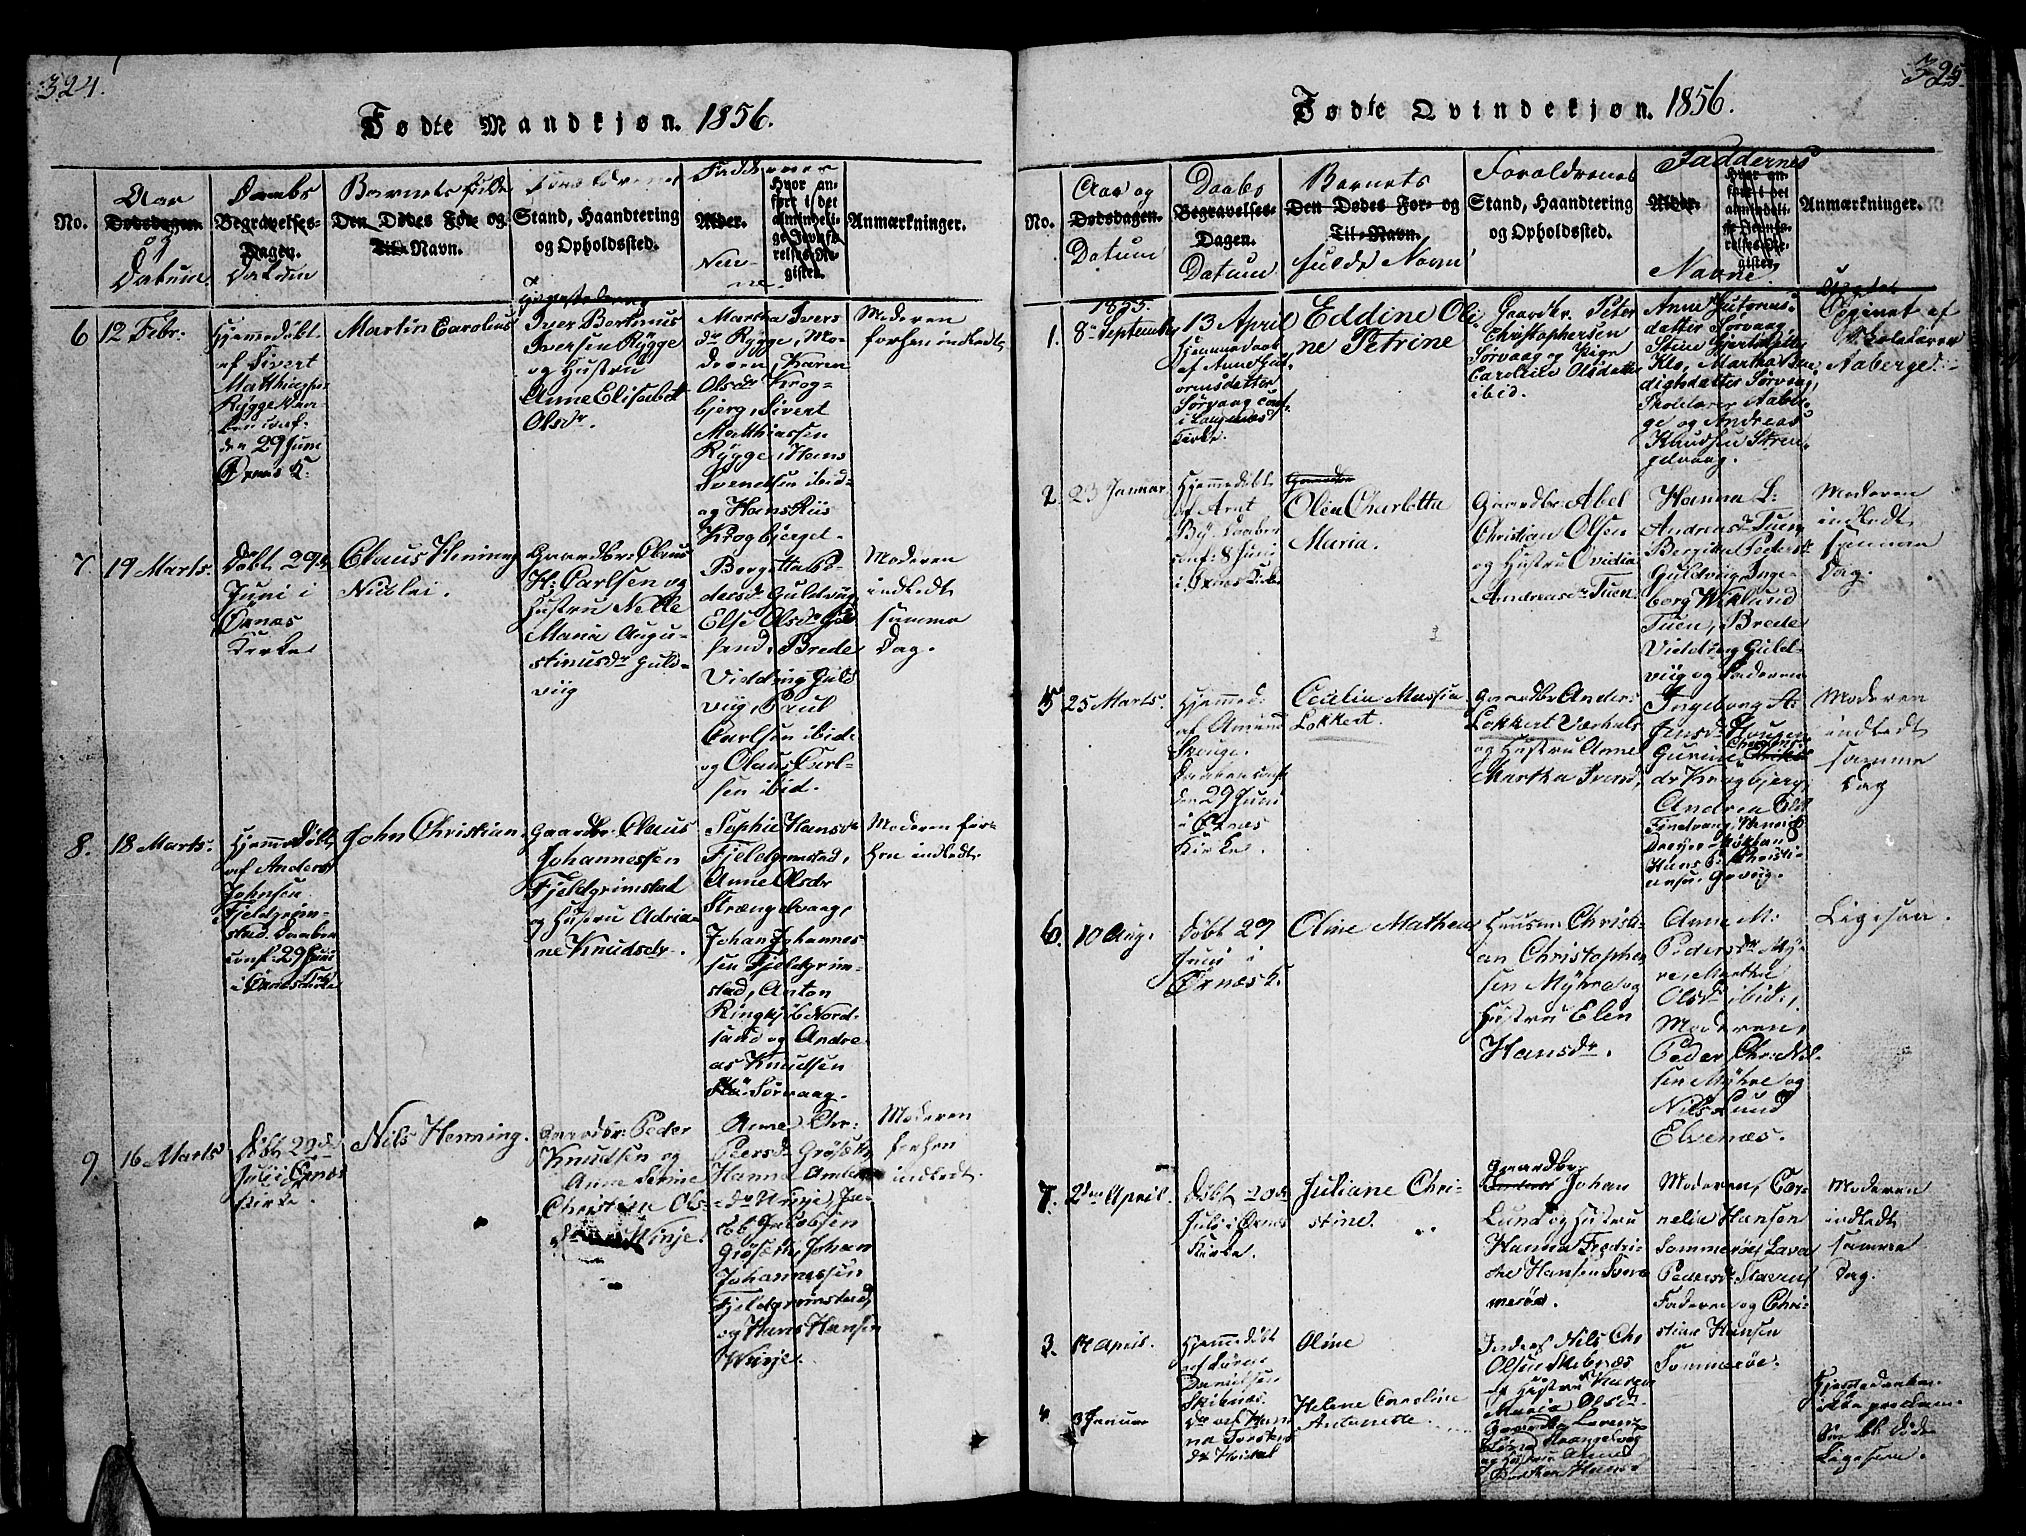 324.
Fødte Mandkjøn. 1856.
No.
Aar
Dødsdagen.
og
Datum
Daabs
Begravelses-
Dagen.
Datum
Barnets fulde
Den Dødes For- og
Til-Navn.
Forældrenes
Stand, Haandtering
og Opholdssted.
Faddernes
Alder.
Nav-
ne.
Hvor an-
ført i det
almindeli-
ge Jevnfø-
relses-Re-
gister.
Anmærkninger.
6
12 Febr.
Hjemmedøbt
af Sivert
Matthiassen
Rygge
conf.
den 29 Juni
Ørnes K.
Martin Carolius
Iver Bertinus
Iversen Rygge
og Hustru
Anne Elisabet
Olsdr.
Martha Ivers
dr Rygge, Mo-
deren, Karen
Olsdr Krog-
bjerg, Sivert
Matthiassen
Rygge, Hans
Svendsen ibid
og Hans Riis
Krogbjerget.
Moderen
forhen indledt.
7
19 Marts.
Døbt 29de
Juni i
Ørnæs
Kirke
Claus Henning
Nicolai.
Gaardbr. Claus
H: Carlsen og
Hustru Nelle
Maria Augu-
stinusdr Guld-
viig
Bergitta Pe-
dersdr Guldviig
Else Olsdr
sand, Brede
Vidding Guld
viig, Paul
Carlsen ibid.
og Olaus Carl-
sen ibid.
Moderen
indledt
samme
Dag.
8.
18 Marts.
Hjemmedøbt
af Anders
Johnsen
Fjeldgrim-
stad. Daaben
conf. 29 Juni
i Ørnes Kirke
John Christian.
Gaardbr. Claus
Johannessen
Fjeldgrimstad
og Hustru Adria-
ne Knudsdr.
Sophie Hansdr
Fjeldgrimstad,
Anne Olsdr
Strængelvaag,
Johan Johannes
sen Fjeldgrim-
stad, Anton
Ringkjøb Nord-
sand og Andre
as Knudsen
Sørvaag.
Moderen for-
hen indledt.
9.
16 Marts
Døbt 20de
Juli i Ørnæs
Kirke.
Nils Henning.
Gaardbr. Peder
Knudsen og
Anne
Christine Ols-
Winje.
Anne Chr.
Peersdr Grøsæth,
Hanna Anders
dr Winje, Ja-
kob Jakobsen
Grøsæth, Johan
Johannessen
Fjeldgrimstad,
og Hans Hansen
Winje.
Moderen
forhen
indledt.
325.
Fødte Qvindekjøn. 1856.
No.
Aar og
Dødsdagen.
Datum
Daabs
Begravelses-
Dagen.
Datum
Barnets
Den Dødes For- og
Til-Navn.
fulde Navn
Forældrenes
Stand, Haandtering
og Opholdssted.
Faddernes
Alder.
Navne.
Hvor an-
ført i det
almindeli-
ge Jevnfø-
relses-Re-
gister.
Anmærkninger.
1.
1855.
8de September
13 April
hjemmedøbt
af Anne
ormsdatter
Sørvaag conf.
i Langenæs
Kirke.
Eddine Oli-
ne Petrine
Gaardbr. Peter
Christophersen
Sørvaag og Pige
Caroline Olsdatter
ibid.
Anne Gutorms-
datter Sørvaag,
Stine
Klo, Martha Ben-
digtsdatter Sørvaag,
Skolelærer Aaber-
ge og Andreas
Knudsen Stren-
gelvaag.
Opgivet af
Skolelærer
Aaberge.
2
23 Januar.
Hjemmedøbt
af Arnt
Bÿ. Daaben
conf. 8 Juni
i Ørnes Kirke.
Olea Charlotta
Maria.
Gaardbr. Abel
Christian Olsen
og Hustru Ovidia
Andreasdr Tuen
Hanna L:
Andreasdr Tuen,
Bergitta Pedersdr
Guldviig, Inge-
borg Wiklund
Tuen, Brede
Vidding Guld-
viig og Faderen
Moderen
indledt
samme
Dag.
5
25 Marts.
Hjemmed:
af Amund
Skouge.
Daaben conf.
den 29 Juni
i Ørnes
Kirke.
Cecilia Massia
Lokkert.
Gaardbr Anders
Lokkert
og Hustru Anne
Martha
Ingeborg A:
Jensdr Skougen
Gurine
dr Krogbjerg,
Andrea
Hans C. Christi-
ansen
Moderen
indledt
samme
Dag
6.
10 Aug.
Døbt 29
Juni i
Ørnæs K.
Oline Mathea
Huusm: Christi-
an Christopher
sen Myhre og
Hustru Elen
Hansdr.
Anne M:
Pedersdr My-
re, Marthe
Olsdr ibid.,
Moderen,
Peder Chr: Nil-
sen Myhre og
Nils Lund
Elvenæs.
Ligesaa.
7.
2den April.
Døbt 20de
Juli i Ørnes
Kirke.
Juliane Chri-
stine.
Gaardbr.
Johan
Lund og Hustru
Hanna Fredri-
cke Hansen Som
merøe.
Moderen, Cor-
nelia Hansen
Sommerøe, Lava
Pedersdr Stavnes
Faderen og Chri-
stian Hansen
Sommerøe.
Moderen
indledt
samme
Dag.
3.
14 April.
Hjemmedøbt
af Søren
Danielsen
Skibnæs.
Oline
Inders. Nils Chr
Olsen Skibnæs
og Hustru Karen
Maria Olsdr
4.
3 Januar
Helene Caroline
Antonette.
Gaardbr Lorenz
og Hustru
Hjemmedøbt
Ligesaa.